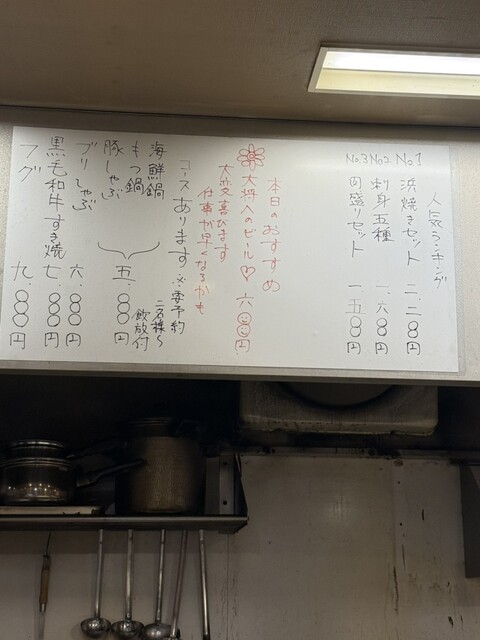 人気ランキング
No.1 浜焼きセット 二、二〇〇円
No.2 刺身五種 一、六〇〇円
No.3 肉盛りセット 一、五〇〇円
本日のおすすめ
大将へのビール♡ 六〇〇円
大変喜びます
仕事が早くなるかも
コースあります ※要予約
二名様〜
飲放付
海鮮鍋
もつ鍋
豚しゃぶ
五、〇〇〇円
ブリしゃぶ 六、〇〇〇円
黒毛和牛すき焼 七、〇〇〇円
フグ 九、〇〇〇円